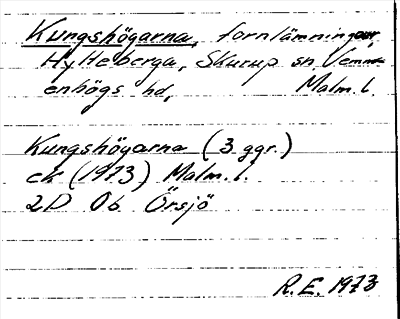 Kungshögarna, fornlämningar,
Hylteberga, Skurup sn Vemmen-
enhögs hd, Malm. l.
Kungshögarna (3 ggr.)
ek (1973) Malm. l.
2D Ob Örsjö
R.E. 1973